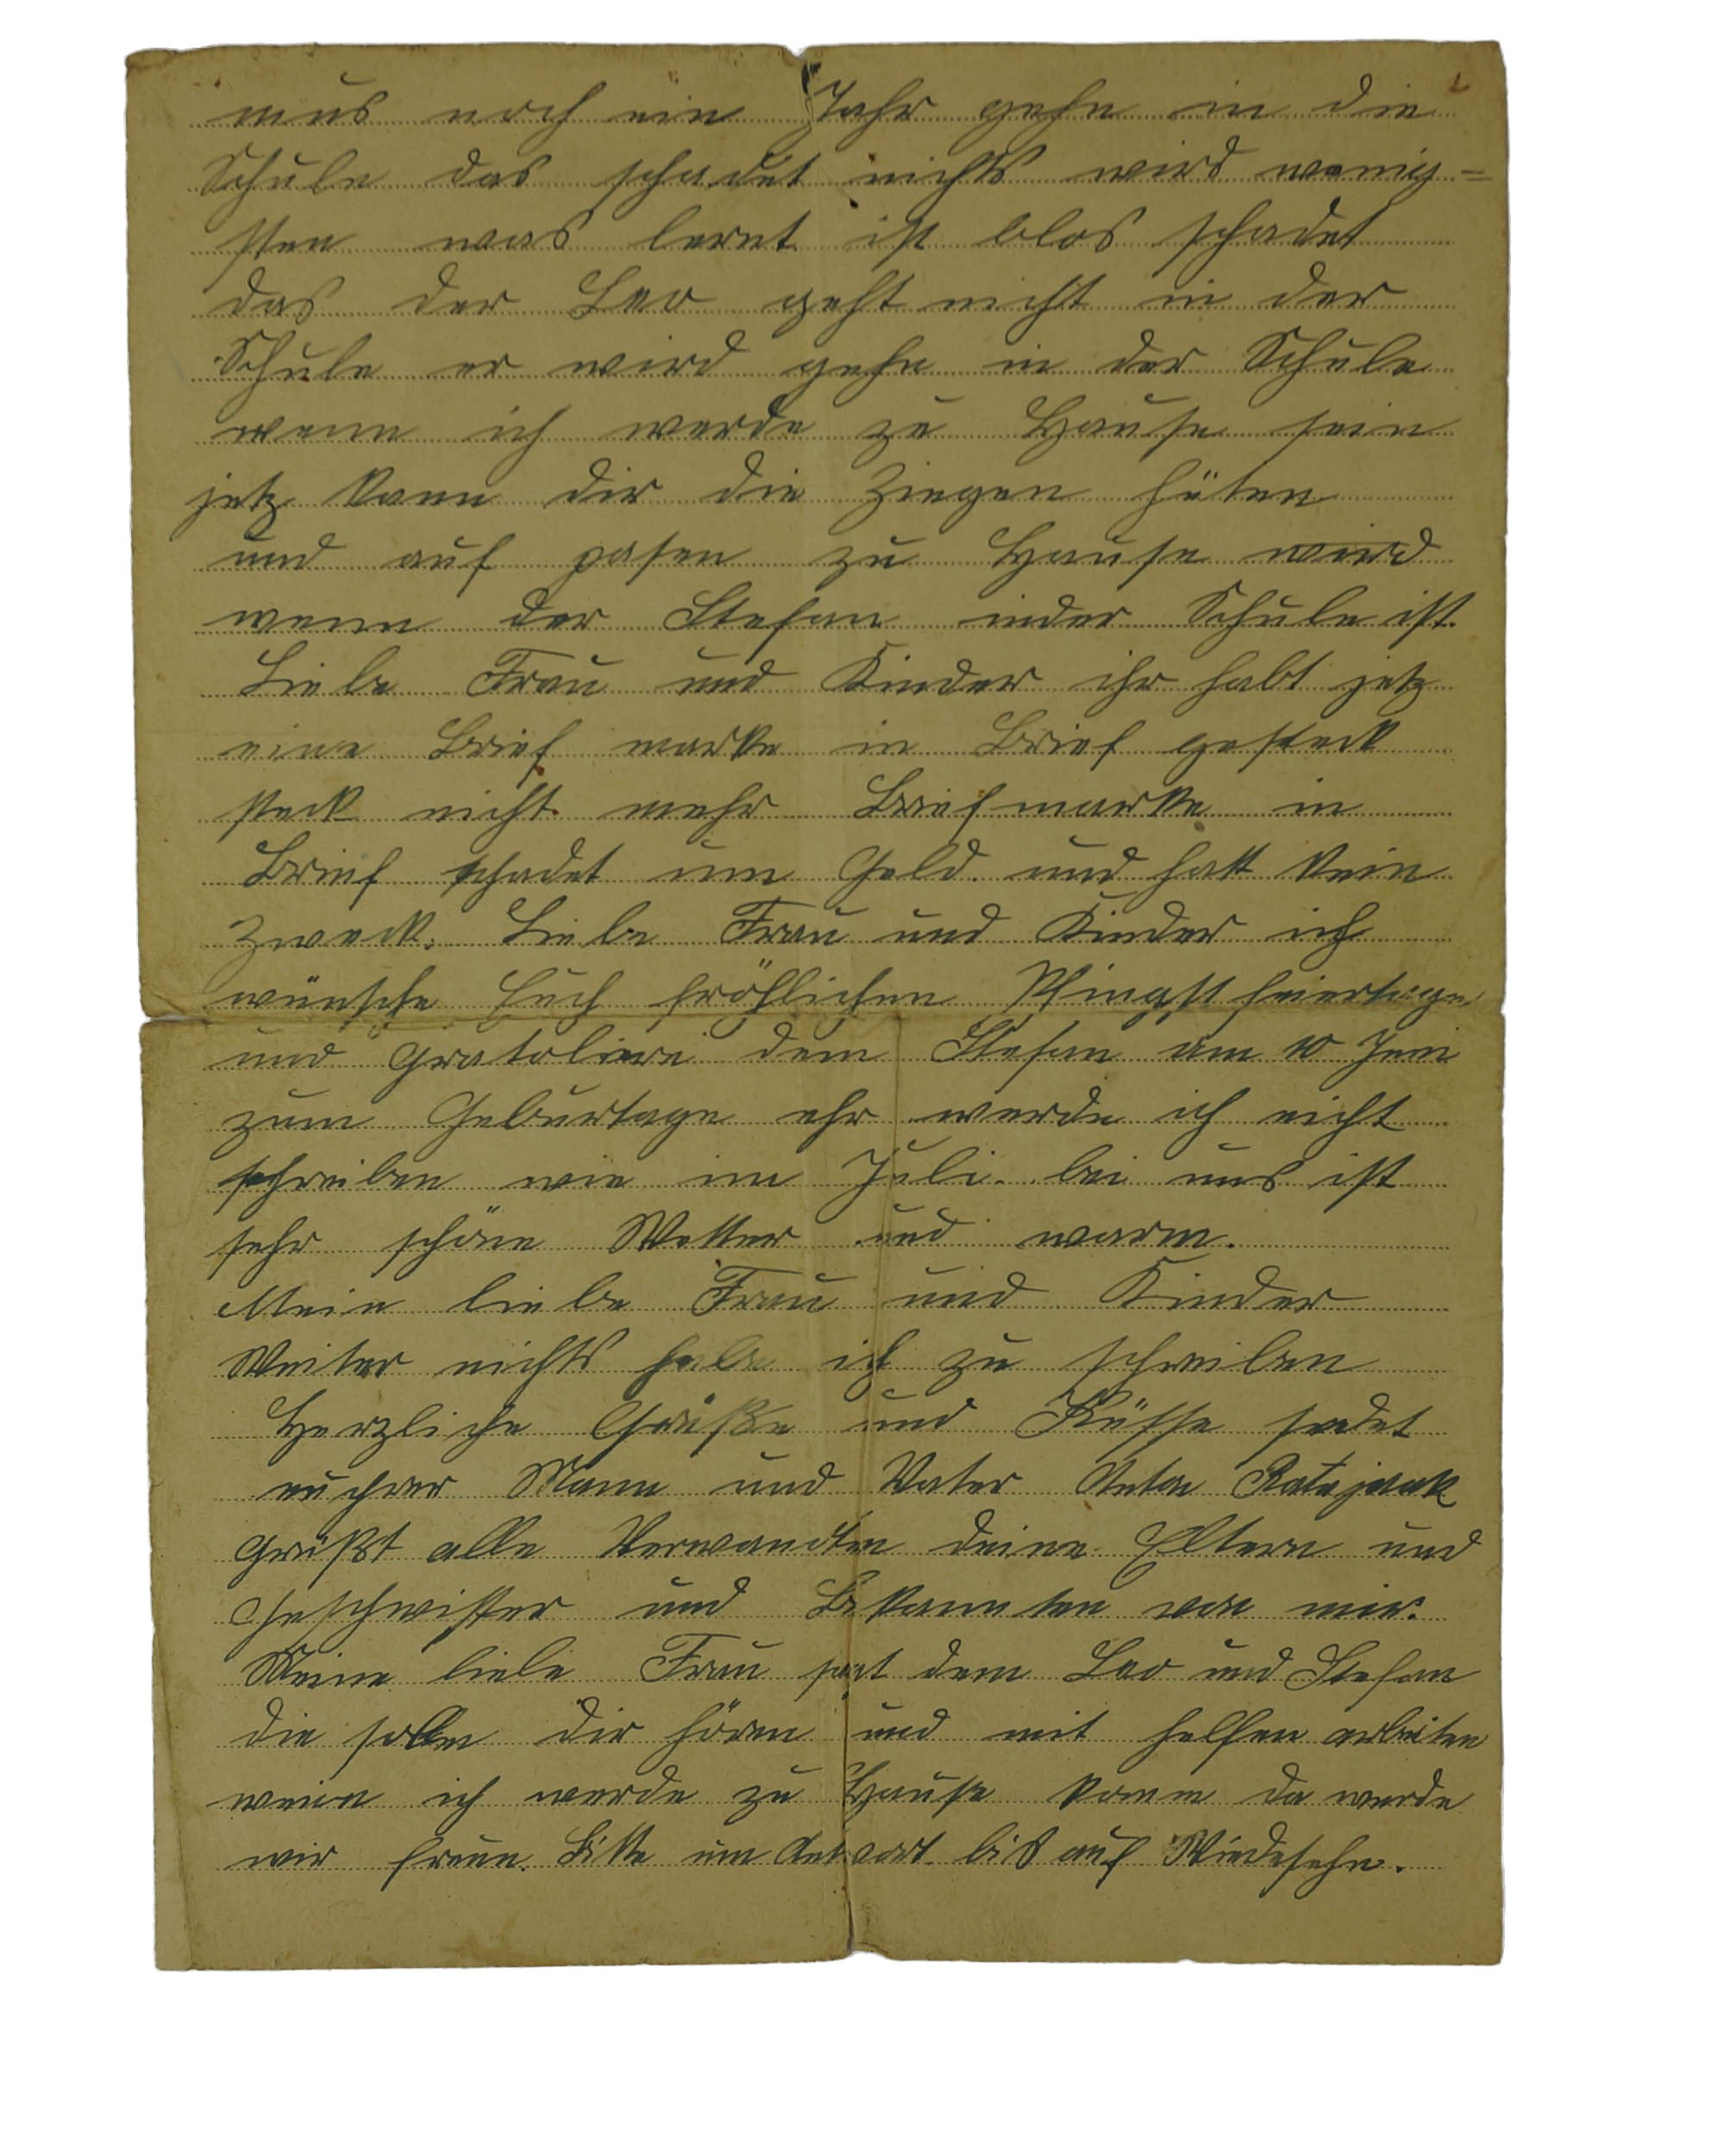 mus noch ein Jahr gehn in die
Schule das schadet nichts wird wenig=
sten was lernt ist blos schadet
das der Leo geht nicht in der
Schule er wird gehn in der Schule
wenn ich werde zu Hause sein
jetz kann dir die Ziegen hüten
und auf pasen zu Hause wird
wenn der Stefan inder Schule ist.
Liebe Frau und Kinder ihr habt jetz
eine Brief marke in Brief gesteck
steck nicht mehr Briefmarke in
Brief schadet um Geld und hatt kein
Zweck. Liebe Frau und Kinder ich
wünsche Euch fröhlichen Pfingstfeiertage
und Gratoliere dem Stefan am 10 Juni
zum Geburtage ehr werde ich nicht
schreiben wie im Juli. bei uns ist
sehr schöne Wetter und warm.
Mein liebe Frau und Kinder
Weiter nichts habe ich zu schreiben
Herzliche Grüße und Küsse sendet
euchrer Mann und Vater Anton Ratajczak
Grüßt alle Verwandten deine Eltern und
Geschwister und Bekannten von mir.
Meine liebe Frau sagt dem Leo und Stefan
die sollen dir hören und mit helfen arbeiten
wenn ich werde zu Hause komm da werde
wir freun. Bitte um Antwort bis auf Wiedesehn.